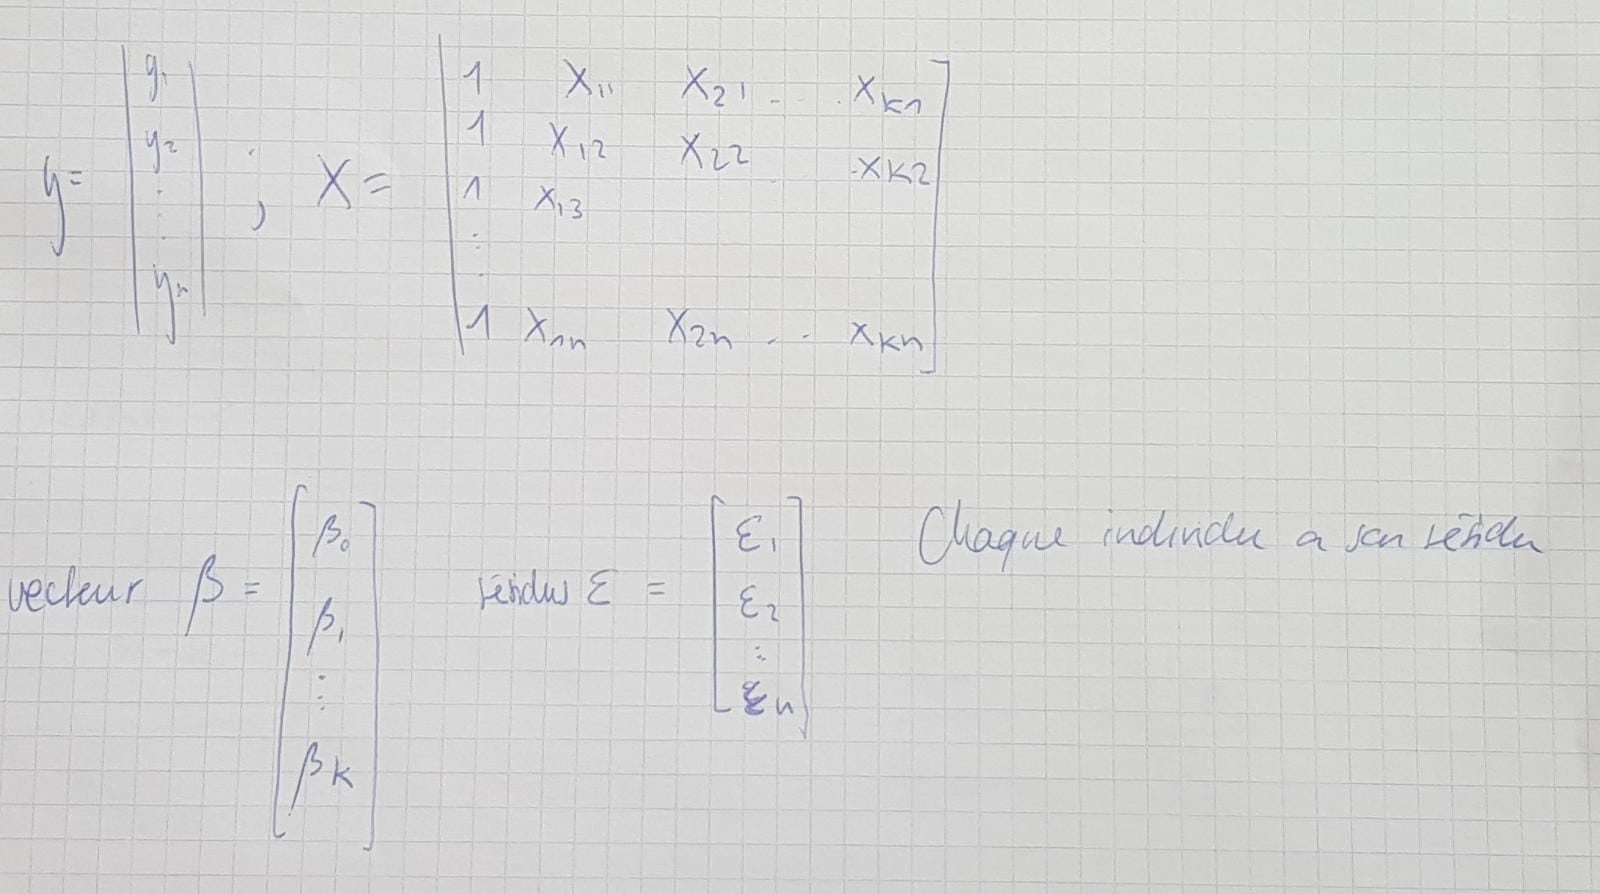 y = [y₁ y₂ ⋮ yₙ] ; X = [1 X₁₁ X₂₁ … X_K1
1 X₁₂ X₂₂ X_K2
1 X₁₃
⋮
1 X₁ₙ X₂ₙ … X_Kn]
vecteur β = [β₀ β₁ ⋮ β_K] résidus ε = [ε₁ ε₂ ⋮ εₙ] Chaque individu a son résidu